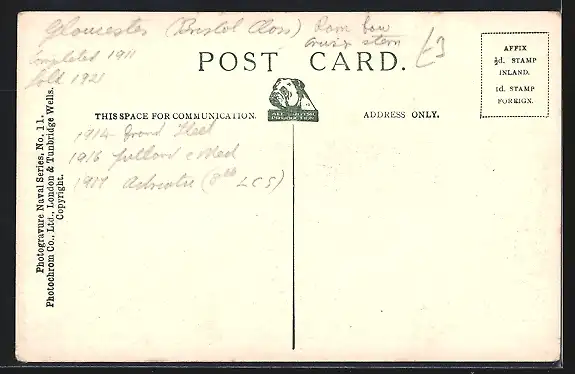 Gloucester (Bristol Class) Ram bow
cruiz stern
Completed 1911
Sold 1921
£3
POST CARD.
AFFIX
½d. STAMP
INLAND.
1d. STAMP
FOREIGN.
ALL BRITISH
PRODUCTION
THIS SPACE FOR COMMUNICATION.
ADDRESS ONLY.
1914 Grand Fleet
1916 Jutland & Med
1917 Adriatic (8th LCS)
Photogravure Naval Series, No. 11.
Photochrom Co., Ltd., London & Tunbridge Wells.
Copyright.